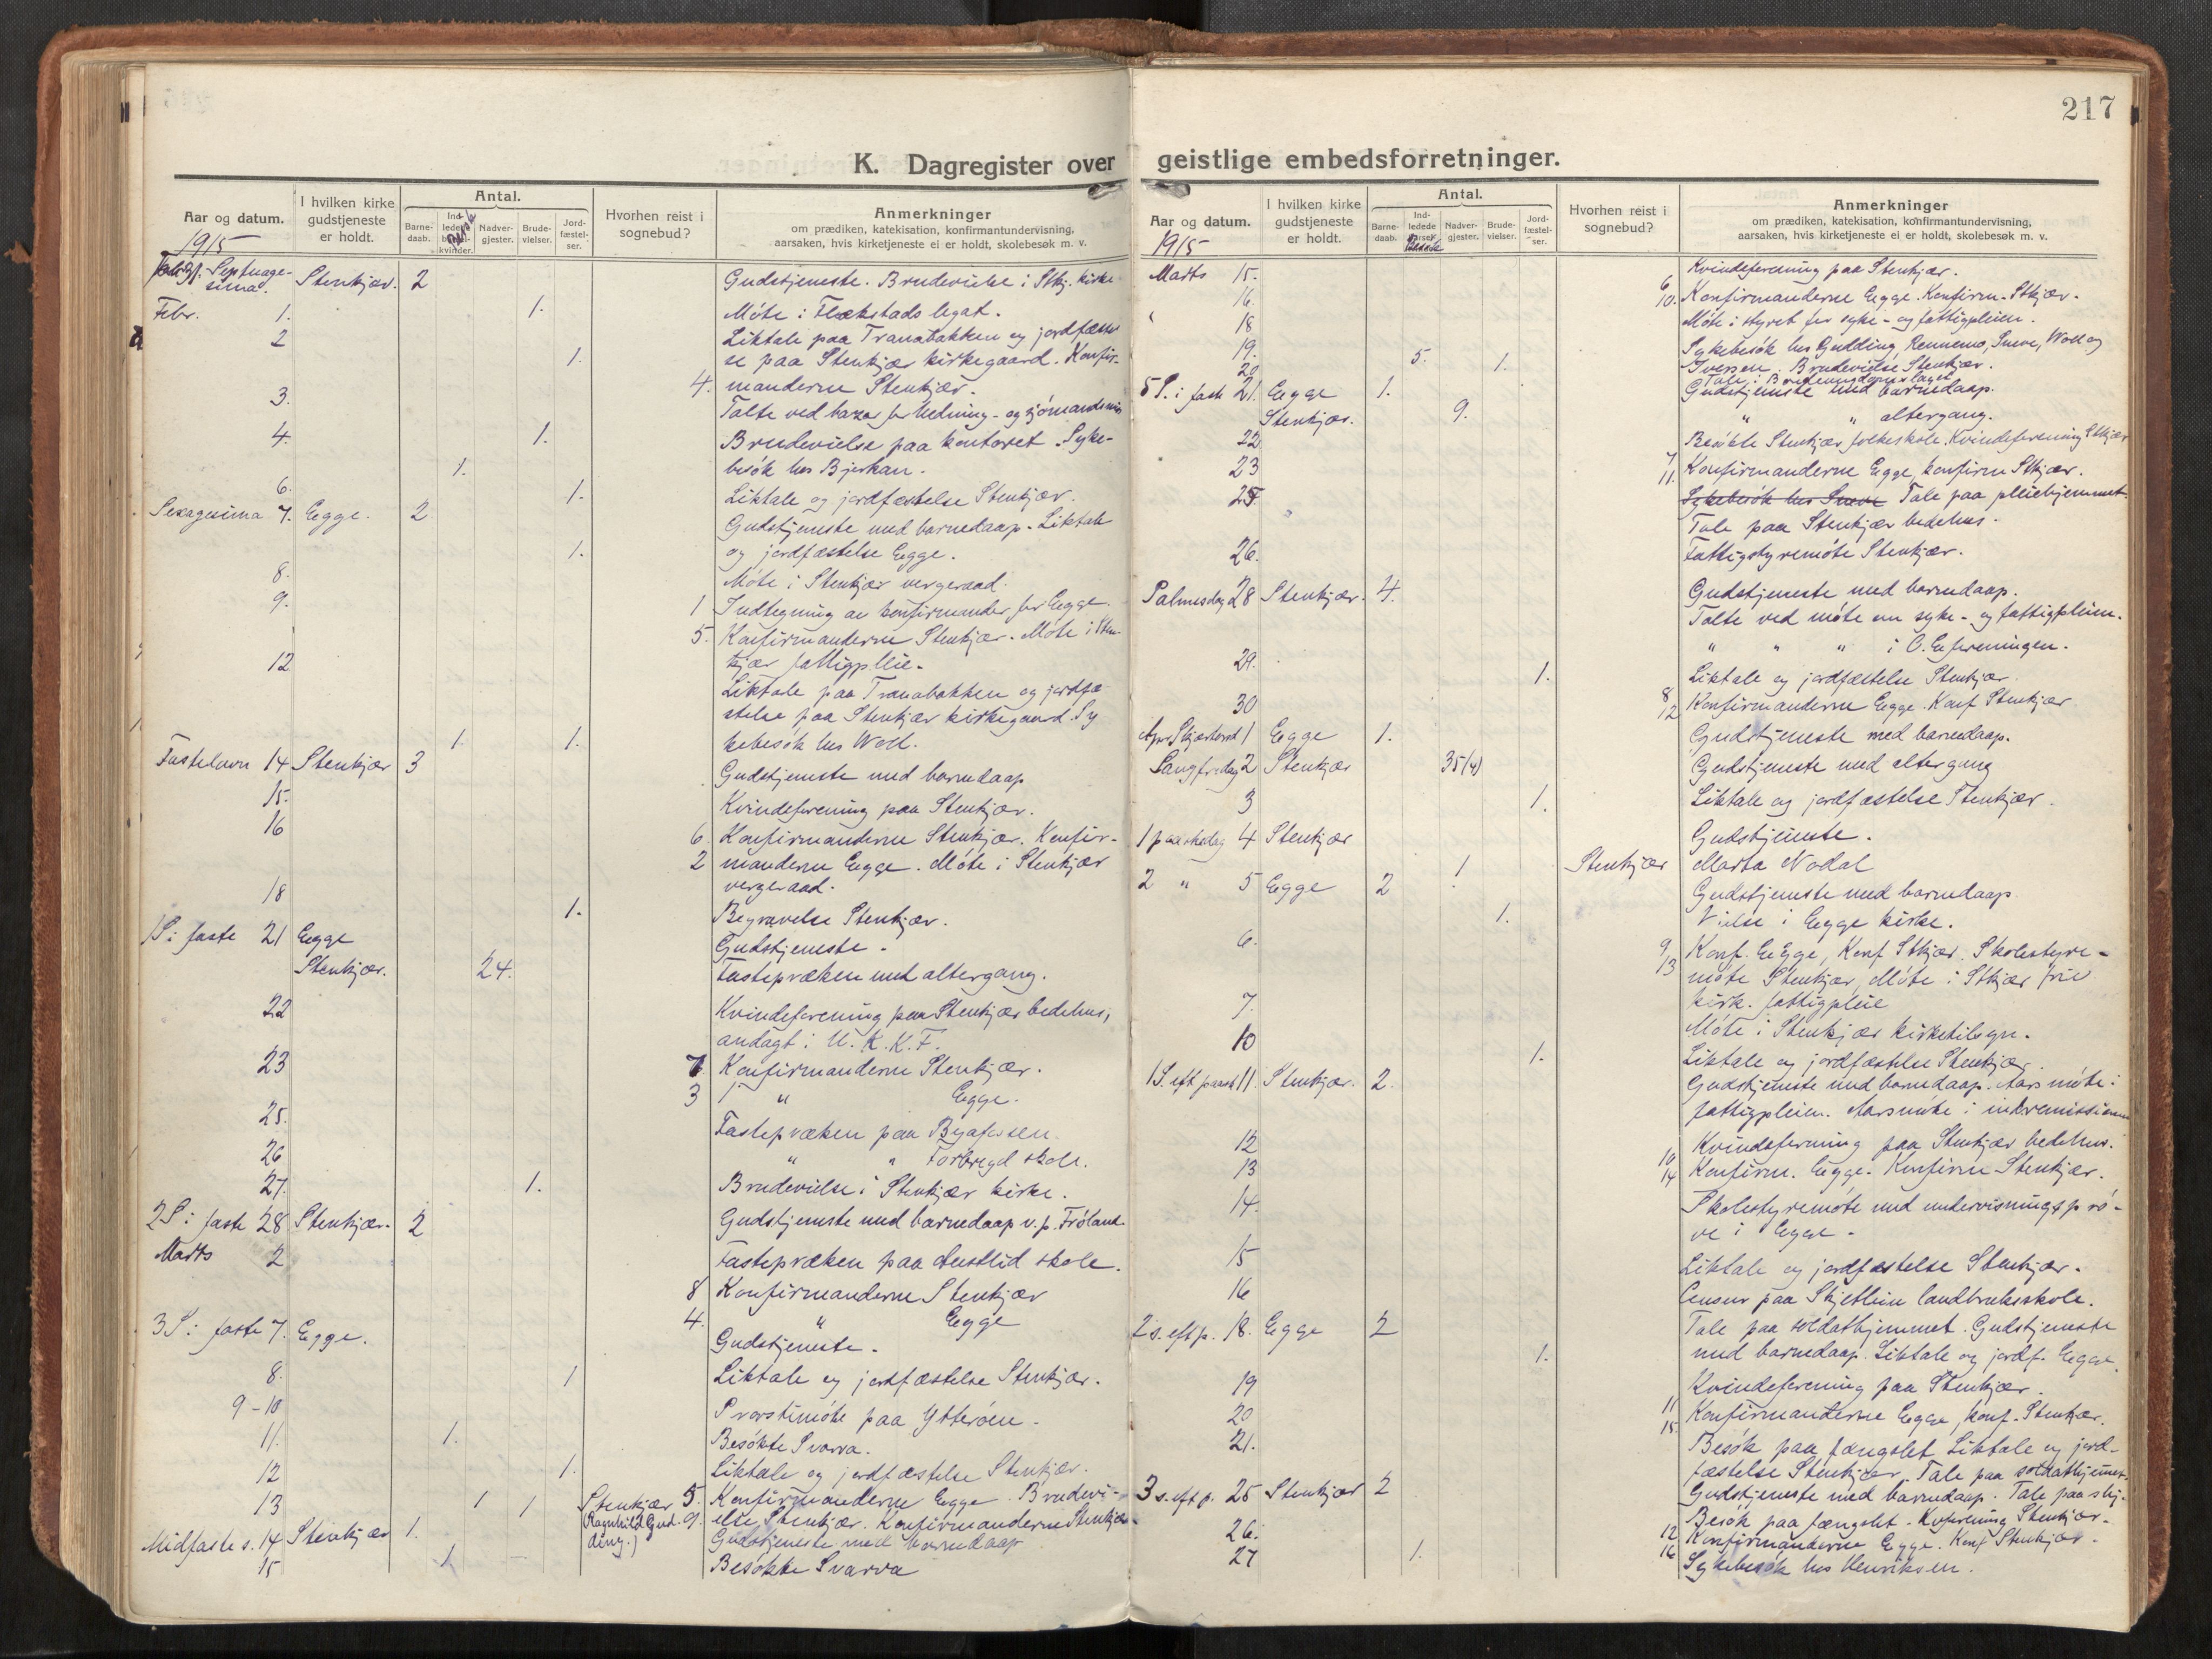 217
K. Dagregister over geistlige embedsforretninger.
Aar og datum.
1915
I hvilken kirke gudstjeneste er holdt.
Antal.
Barne-daab.
Nadver-gjester.
Brude-vielser.
Jord-fæstel-ser.
Hvorhen reist i sognebud?
Anmerkninger
om prædiken, katekisation, konfirmantundervisning,
aarsaken, hvis kirketjeneste ei er holdt, skolebesøk m. v.
31. Septuage-sima. Stenkjær. 2 Gudstjeneste. Brudevielse i Stkj. kirke
Febr. 1. 1. Møte i Flekstads legat.
2 Liktale paa Tranabakken og jordfæstel
1. se paa Stenkjær kirkegaard. Konfir-
4. manderne Stenkjær.
3. Talte ved bazar for hedning- og sjømandsmis
4. 1. Brudevielse paa kontoret. Syke-
1. besøk hos Bjerkan.
6. 1. Liktale og jordfæstelse Stenkjær.
Sexagesima 7. Egge. 2 Gudstjeneste med barnedaap. Liktale
1. og jordfæstelse Egge.
8. Møte i Stenkjær vergeraad.
9. 1 Indtegning av konfirmander for Egge.
5. Konfirmanderne Stenkjær. Møte i Sten-
12 kjær fattigpleie.
Liktale paa Tranabakken og jordfæ
stelse paa Stenkjær kirkegaard. Sy
1. 1. kebesøk hos Woll.
Fastelavn 14 Stenkjær 3 Gudstjeneste med barnedaap
15. Kvindeforening paa Stenkjær.
16 6. Konfirmanderne Stenkjær. Konfir-
2 manderne Egge. Møte i Stenkjær
vergeraad.
18 1. Begravelse Stenkjær.
1 S. i faste 21 Egge Gudstjeneste.
Stenkjær. 24. Fastepræken med altergang.
22 Kvindeforening paa Stenkjær bedehus,
andagt i U.K.K.F.
23 7 Konfirmanderne Stenkjær.
3 " Egge.
25. Fastepræken paa
26 " " Forbregd skole.
27. 1. Brudevielse i Stenkjær kirke.
2 S. i faste 28 Stenkjær. 2 Gudstjeneste med barnedaap v. p. Frøland.
Marts 2 Fastepræken paa Austlid skole.
8 Konfirmanderne Stenkjær
4. " Egge
3 S. i faste 7. Egge. Gudstjeneste.
8. 1 Liktale og jordfæstelse Stenkjær.
9-10 Provstimøte paa Ytterøen.
11. 1. Besøkte Svarva.
12 1. Liktale og jordfæstelse Stenkjær.
13 1 1 Stenkjær 5. Konfirmanderne Egge. Brudevi-
(Ragnhild Gud- 9. else Stenkjær. Konfirmanderne Stenkjær
ding.)
Midfaste s. 14 Stenkjær 1. Gudstjeneste med barnedaap
15 1. Besøkte Svarva
Aar og datum.
1915
I hvilken kirke gudstjeneste er holdt.
Antal.
Barne-daab.
Nadver-gjester.
Brude-vielser.
Jord-fæstel-ser.
Hvorhen reist i sognebud?
Anmerkninger
om prædiken, katekisation, konfirmantundervisning,
aarsaken, hvis kirketjeneste ei er holdt, skolebesøk m. v.
Marts 15. Kvindeforening paa Stenkjær.
16. 6 10. Konfirmanderne Egge. Konfirm. Stkjær.
" 18 Møte i styret for syke- og fattigpleien.
19. 5. Sykebesøk hos Gudding, Rennemo, Sneve, Woll og
20 1. Iversen. Brudevielse Stenkjær.
5 S. i faste 21. Egge 1. Gudstjeneste med barnedaap.
Stenkjær. 9. " " altergang.
22 Besøkte Stenkjær folkeskole. Kvindeforening Stkjær
23 7 11. Konfirmanderne Egge, konfirm Stkjær.
25 Sykebesøk hos Sneve Tale paa pleiehjemmet.
Tale paa Stenkjær bedehus.
26. Fattigstyremøte Stenkjær.
Palmesdag 28 Stenkjær. 4. Gudstjeneste med barnedaap.
Talte ved møte om syke- og fattigpleien.
" " " i
29. 1. Liktale og jordfæstelse Stenkjær
30 8 12 Konfirmanderne Egge. Konf Stenkjær
Apr Skjærtorsd 1 Egge 1. Gudstjeneste med barnedaap.
Langfredag 2 Stenkjær 35 (4) Gudstjeneste med altergang
3 1. Liktale og jordfæstelse Stenkjær.
1 paaskedag 4 Stenkjær Gudstjeneste.
1 Stenkjær Marta Nodal
2 " 5 Egge 2 Gudstjeneste med barnedaap.
1. Vielse i Egge kirke.
6. 9 13 Konf. Egge, Konf Stkjær. Skolestyre-
møte Stenkjær, Møte i Stkjær friv
kirk. fattigpleie
7. Møte i Stenkjær kirketilsyn.
10 1. Liktale og jordfæstelse Stenkjær.
1 S. eft paask 11. Stenkjær. 2. Gudstjeneste med barnedaap. Aarsmøte i
fattigpleien. Aarsmøte i indremissionen
12 Kvindeforening paa Stenkjær bedehus.
13 10 14 Konfirm. Egge. Konfirm Stenkjær.
14. Skolestyremøte med undervisningsprø-
ve i Egge.
15 Liktale og jordfæstelse Stenkjær.
16 Censur paa Skjetlein landbruksskole.
2 s. eft p. 18. Egge 2 Tale paa soldathjemmet. Gudstjeneste
1. med barnedaap. Liktale og jordf. Egge.
19 Kvindeforening paa Stenkjær.
20 11 15 Konfirmanderne Egge, konf. Stenkjær.
21. Besøk paa fængslet. Liktale og jord-
fæstelse Stenkjær. Tale paa soldathjemmet.
3 s. eft p. 25 Stenkjær 2 Gudstjeneste med barnedaap. Tale paa
Besøk paa fængslet. Kvforening Stenkjær.
26. 12 16 Konfirmanderne Egge. Konf Stenkjær.
27 1. Sykebesøk hos Henriksen.